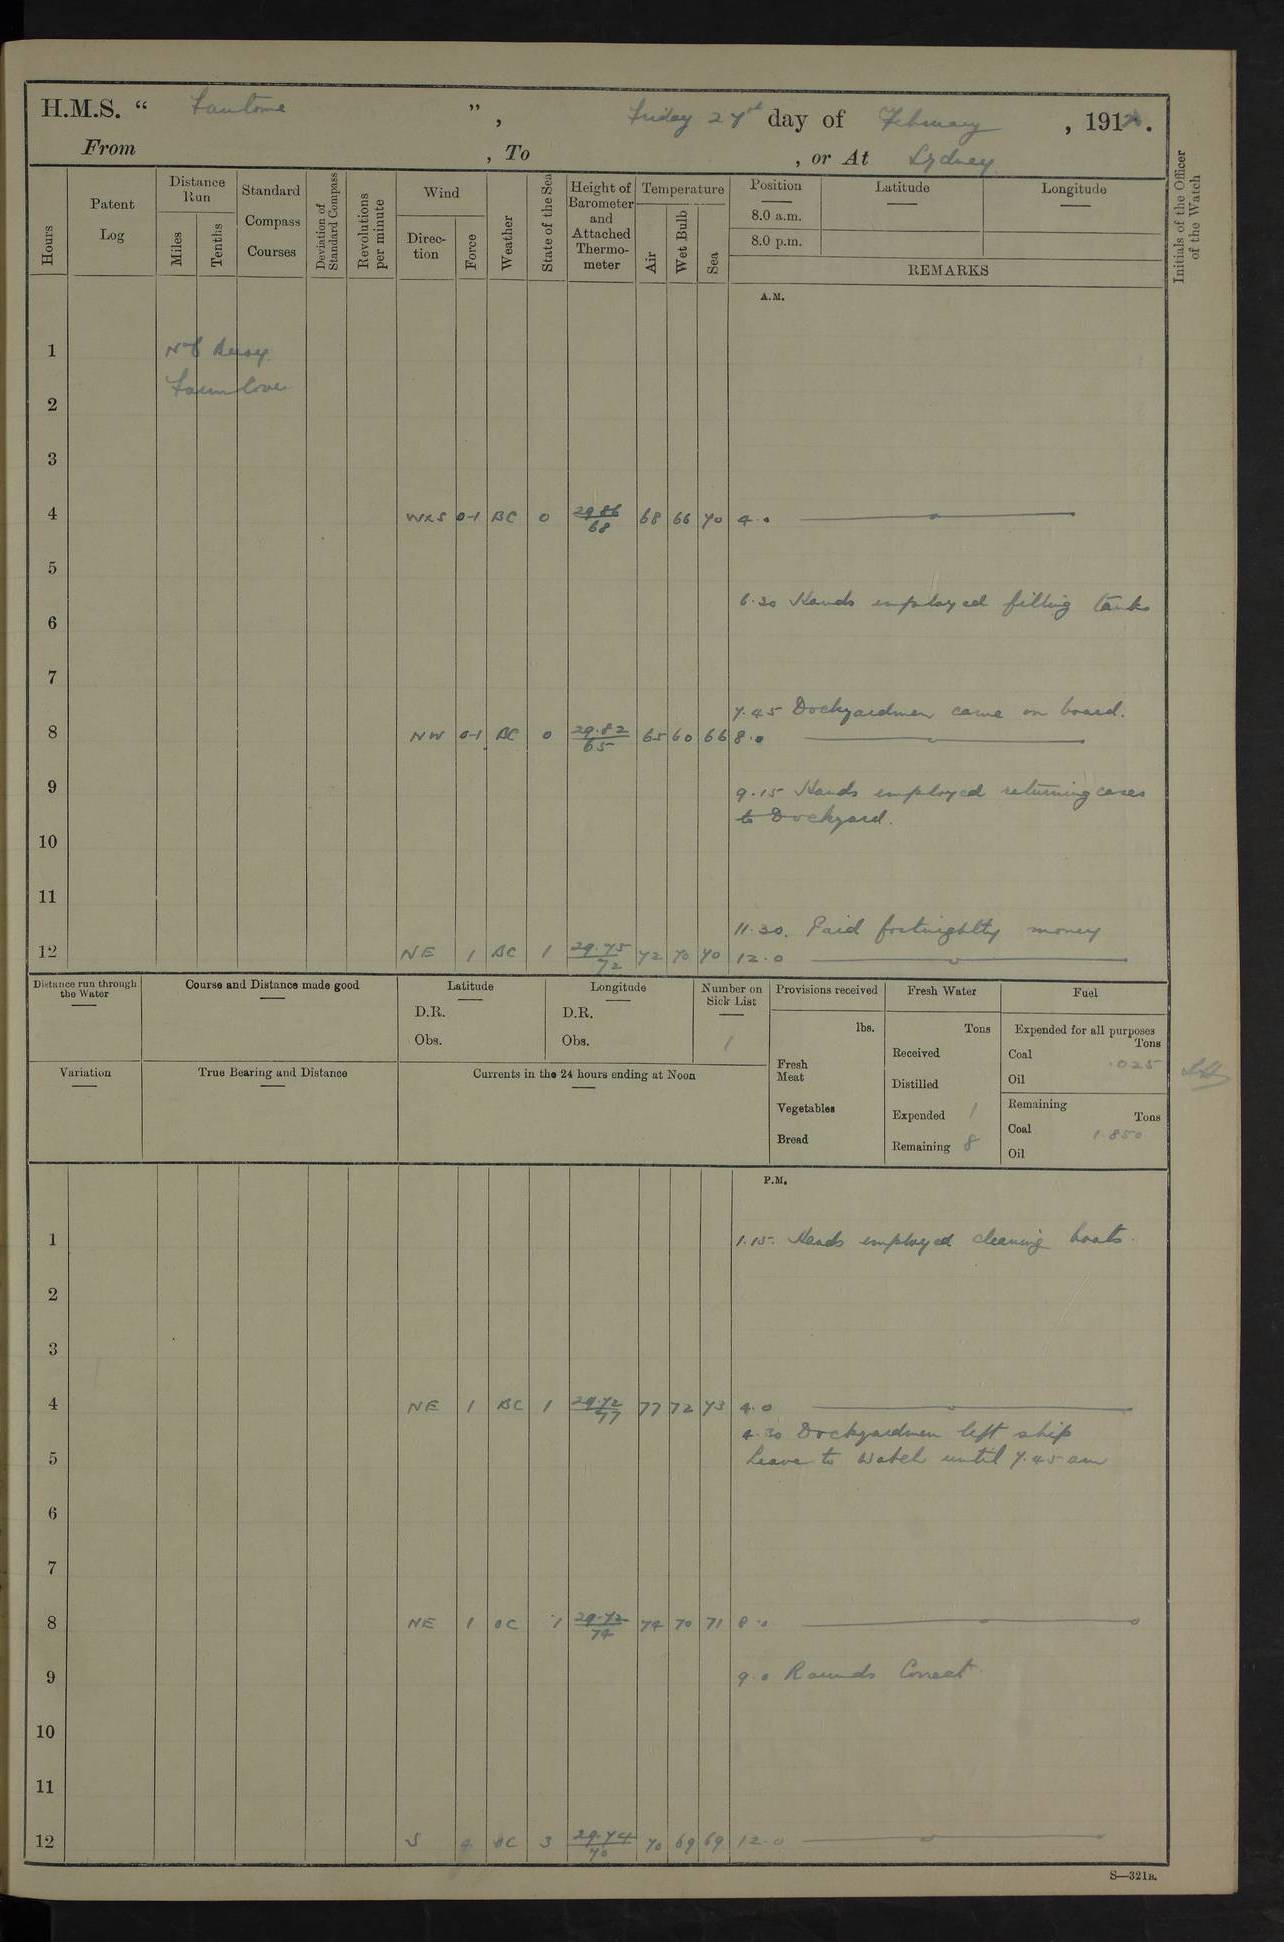 H.M.S. “ Fantome ” , Friday 27th day of February , 1914.
From , To , or At Sydney
Initials of the Officer of the Watch
Hours
Patent Log
Distance Run
Miles
Tenths
Standard Compass Courses
Deviation of Standard Compass
Revolutions per minute
Wind
Direction
Force
Weather
State of the Sea
Height of Barometer and Attached Thermometer
Temperature
Air
Wet Bulb
Sea
Position Latitude Longitude
8.0 a.m.
8.0 p.m.
REMARKS
A.M.
1 Buoy
Farm Cove
2
3
4 WXS 0-1 BC 0 29.86/68 68 66 70 4.0
5
6.30 Hands employed filling tanks
6
7
7.45 Dockyardmen came on board.
8 NW 0-1 BC 0 29.82/65 65 60 66 8.0
9
9.15 Hands employed returning cases
to Dockyard.
10
11
11.30. Paid fortnightly money
12 NE 1 BC 1 29.75/72 72 70 70 12.0
Distance run through the Water
Course and Distance made good
Latitude
D.R.
Obs.
Longitude
D.R.
Obs.
Number on Sick List
1
Provisions received
lbs.
Fresh Meat
Vegetables
Bread
Fresh Water
Tons
Received
Distilled
Expended 1
Remaining 8
Fuel
Expended for all purposes
Tons
Coal .025
Oil
Remaining
Tons
Coal 1.850
Oil
Variation
True Bearing and Distance
Currents in the 24 hours ending at Noon
P.M.
1 1.15. Hands employed cleaning boats.
2
3
4 NE 1 BC 1 29.72/77 77 72 73 4.0
4.30 Dockyardmen left ship
5 Leave to Watch until 7.45 am
6
7
8 NE 1 BC 1 29.72/74 74 70 71 8.0
9 9.0 Rounds Correct
10
11
12 S 4 BC 3 29.74/70 70 69 69 12.0
S—321B.